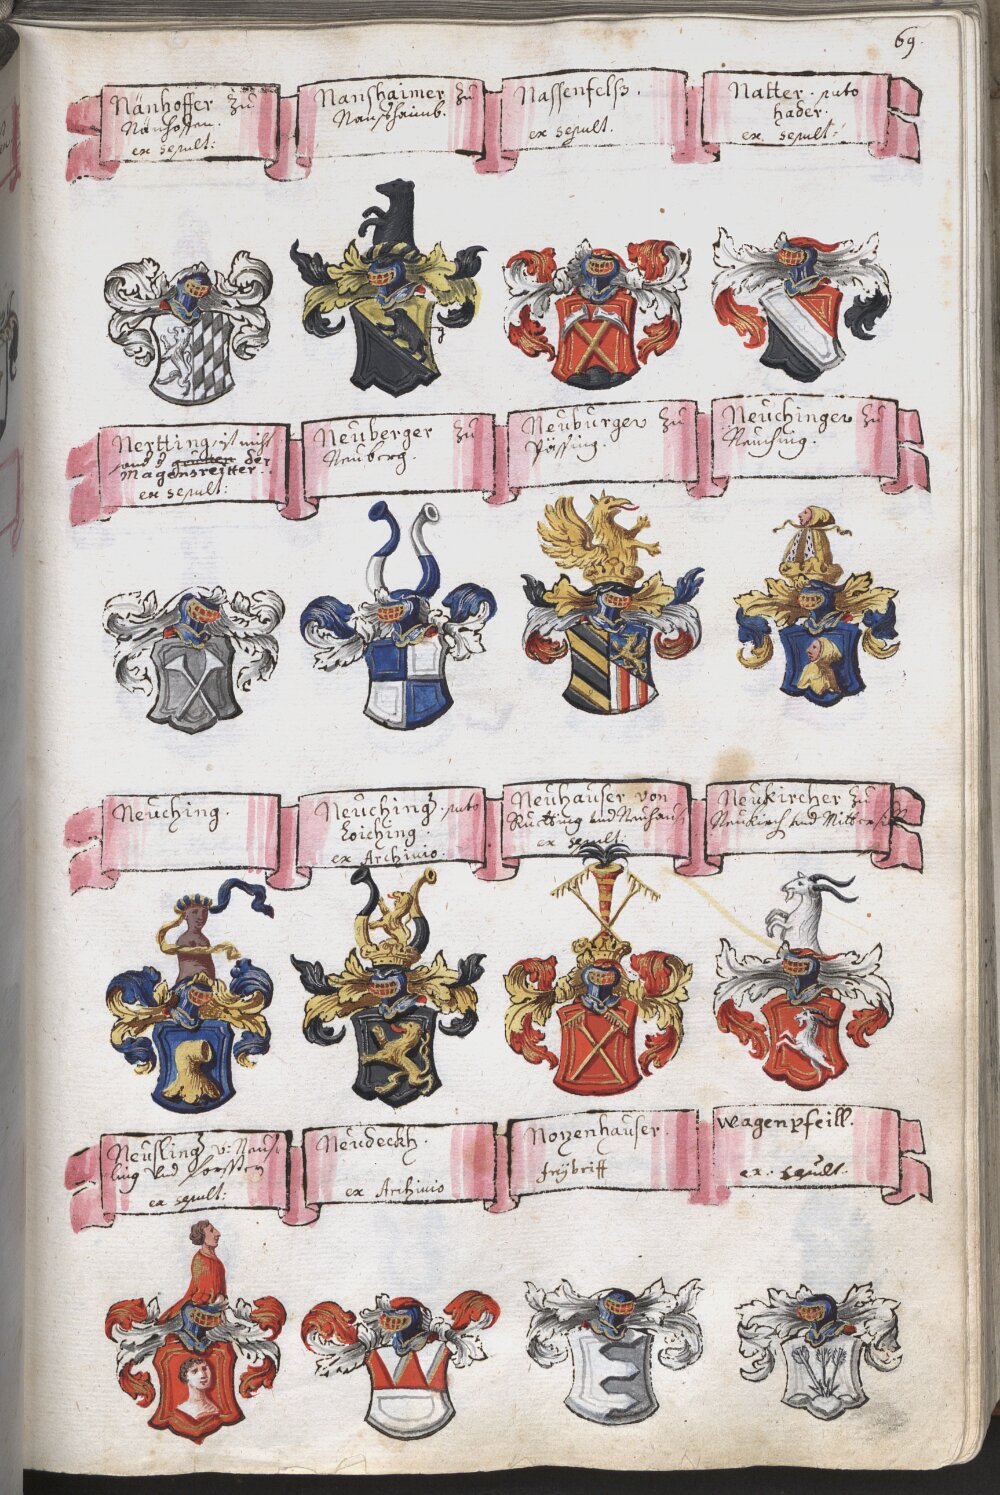 69.
Nänhoffer zu
Nänhoffen.
ex sepult:
Nanshaimer zu
Nanshaimb.
Nassenfelß.
ex sepult.
Natter. puto
hader.
ex sepult:
Nertting, ist nicht
der
Magensreitter.
ex sepult:
Neuberger zu
Neuberg.
Neuburger zu
Pässing.
Neuchinger zu
Neuching.
Neuching.
Neuching. puto
Eoiching.
ex Archivio.
Neuhauser von
Rueting und Neuhaus
ex sepult:
Neukircher zu
Neukirch und Nittersill
Neusling v: Neus-
ling und
ex sepult:
Neudeckh.
ex Archivio
Noyenhauser.
freybrieff
Wagenpfeill.
ex. sepult.